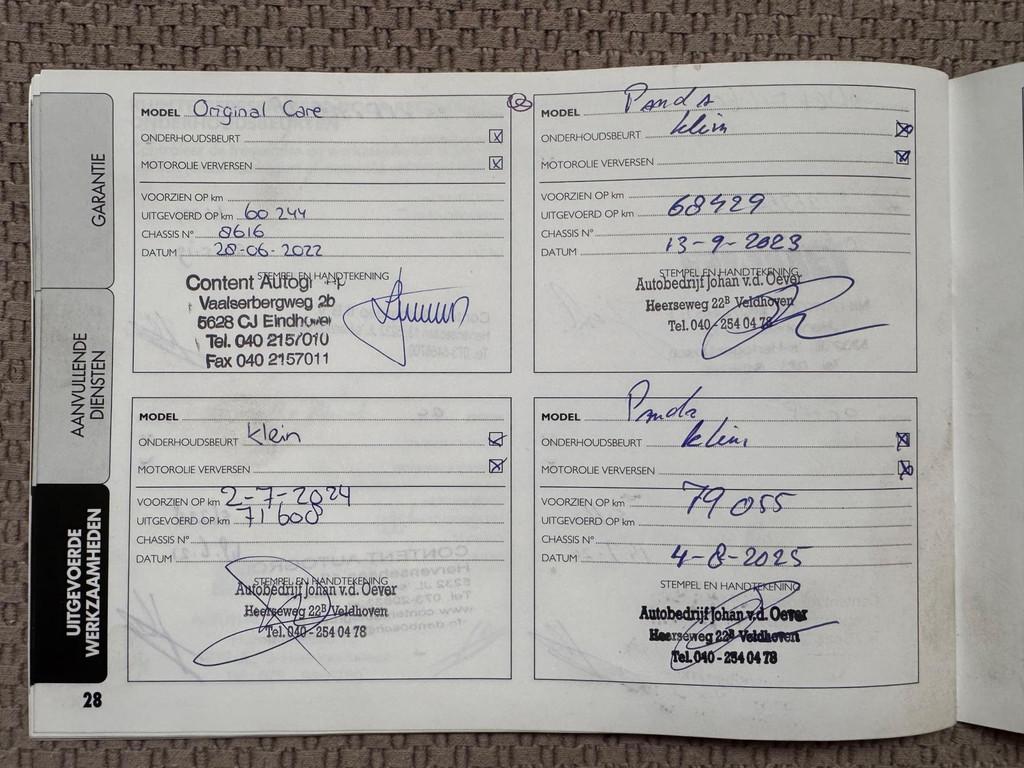 GARANTIE
AANVULLENDE
DIENSTEN
UITGEVOERDE
WERKZAAMHEDEN
28
MODEL Original Care
ONDERHOUDSBEURT
MOTOROLIE VERVERSEN
VOORZIEN OP km
UITGEVOERD OP km 60 244
CHASSIS N° 8616
DATUM 28-06-2022
STEMPEL EN HANDTEKENING
Content Autogr
Vaalserbergweg 2b
5628 CJ Eindhoven
Tel. 040 2157010
Fax 040 2157011
MODEL Panda
ONDERHOUDSBEURT klein
MOTOROLIE VERVERSEN
VOORZIEN OP km
UITGEVOERD OP km 68429
CHASSIS N°
DATUM 13-9-2023
STEMPEL EN HANDTEKENING
Autobedrijf Johan v.d. Oever
Heerseweg 22B Veldhoven
Tel. 040 - 254 04 78
MODEL
ONDERHOUDSBEURT Klein
MOTOROLIE VERVERSEN
VOORZIEN OP km 2-7-2024
UITGEVOERD OP km 71 600
CHASSIS N°
DATUM
STEMPEL EN HANDTEKENING
Autobedrijf Johan v.d. Oever
Heerseweg 22B Veldhoven
Tel. 040 - 254 04 78
MODEL Panda
ONDERHOUDSBEURT klein
MOTOROLIE VERVERSEN
VOORZIEN OP km 79 055
UITGEVOERD OP km
CHASSIS N°
DATUM 4-8-2025
STEMPEL EN HANDTEKENING
Autobedrijf Johan v.d. Oever
Heerseweg 22B Veldhoven
Tel. 040 - 254 04 78